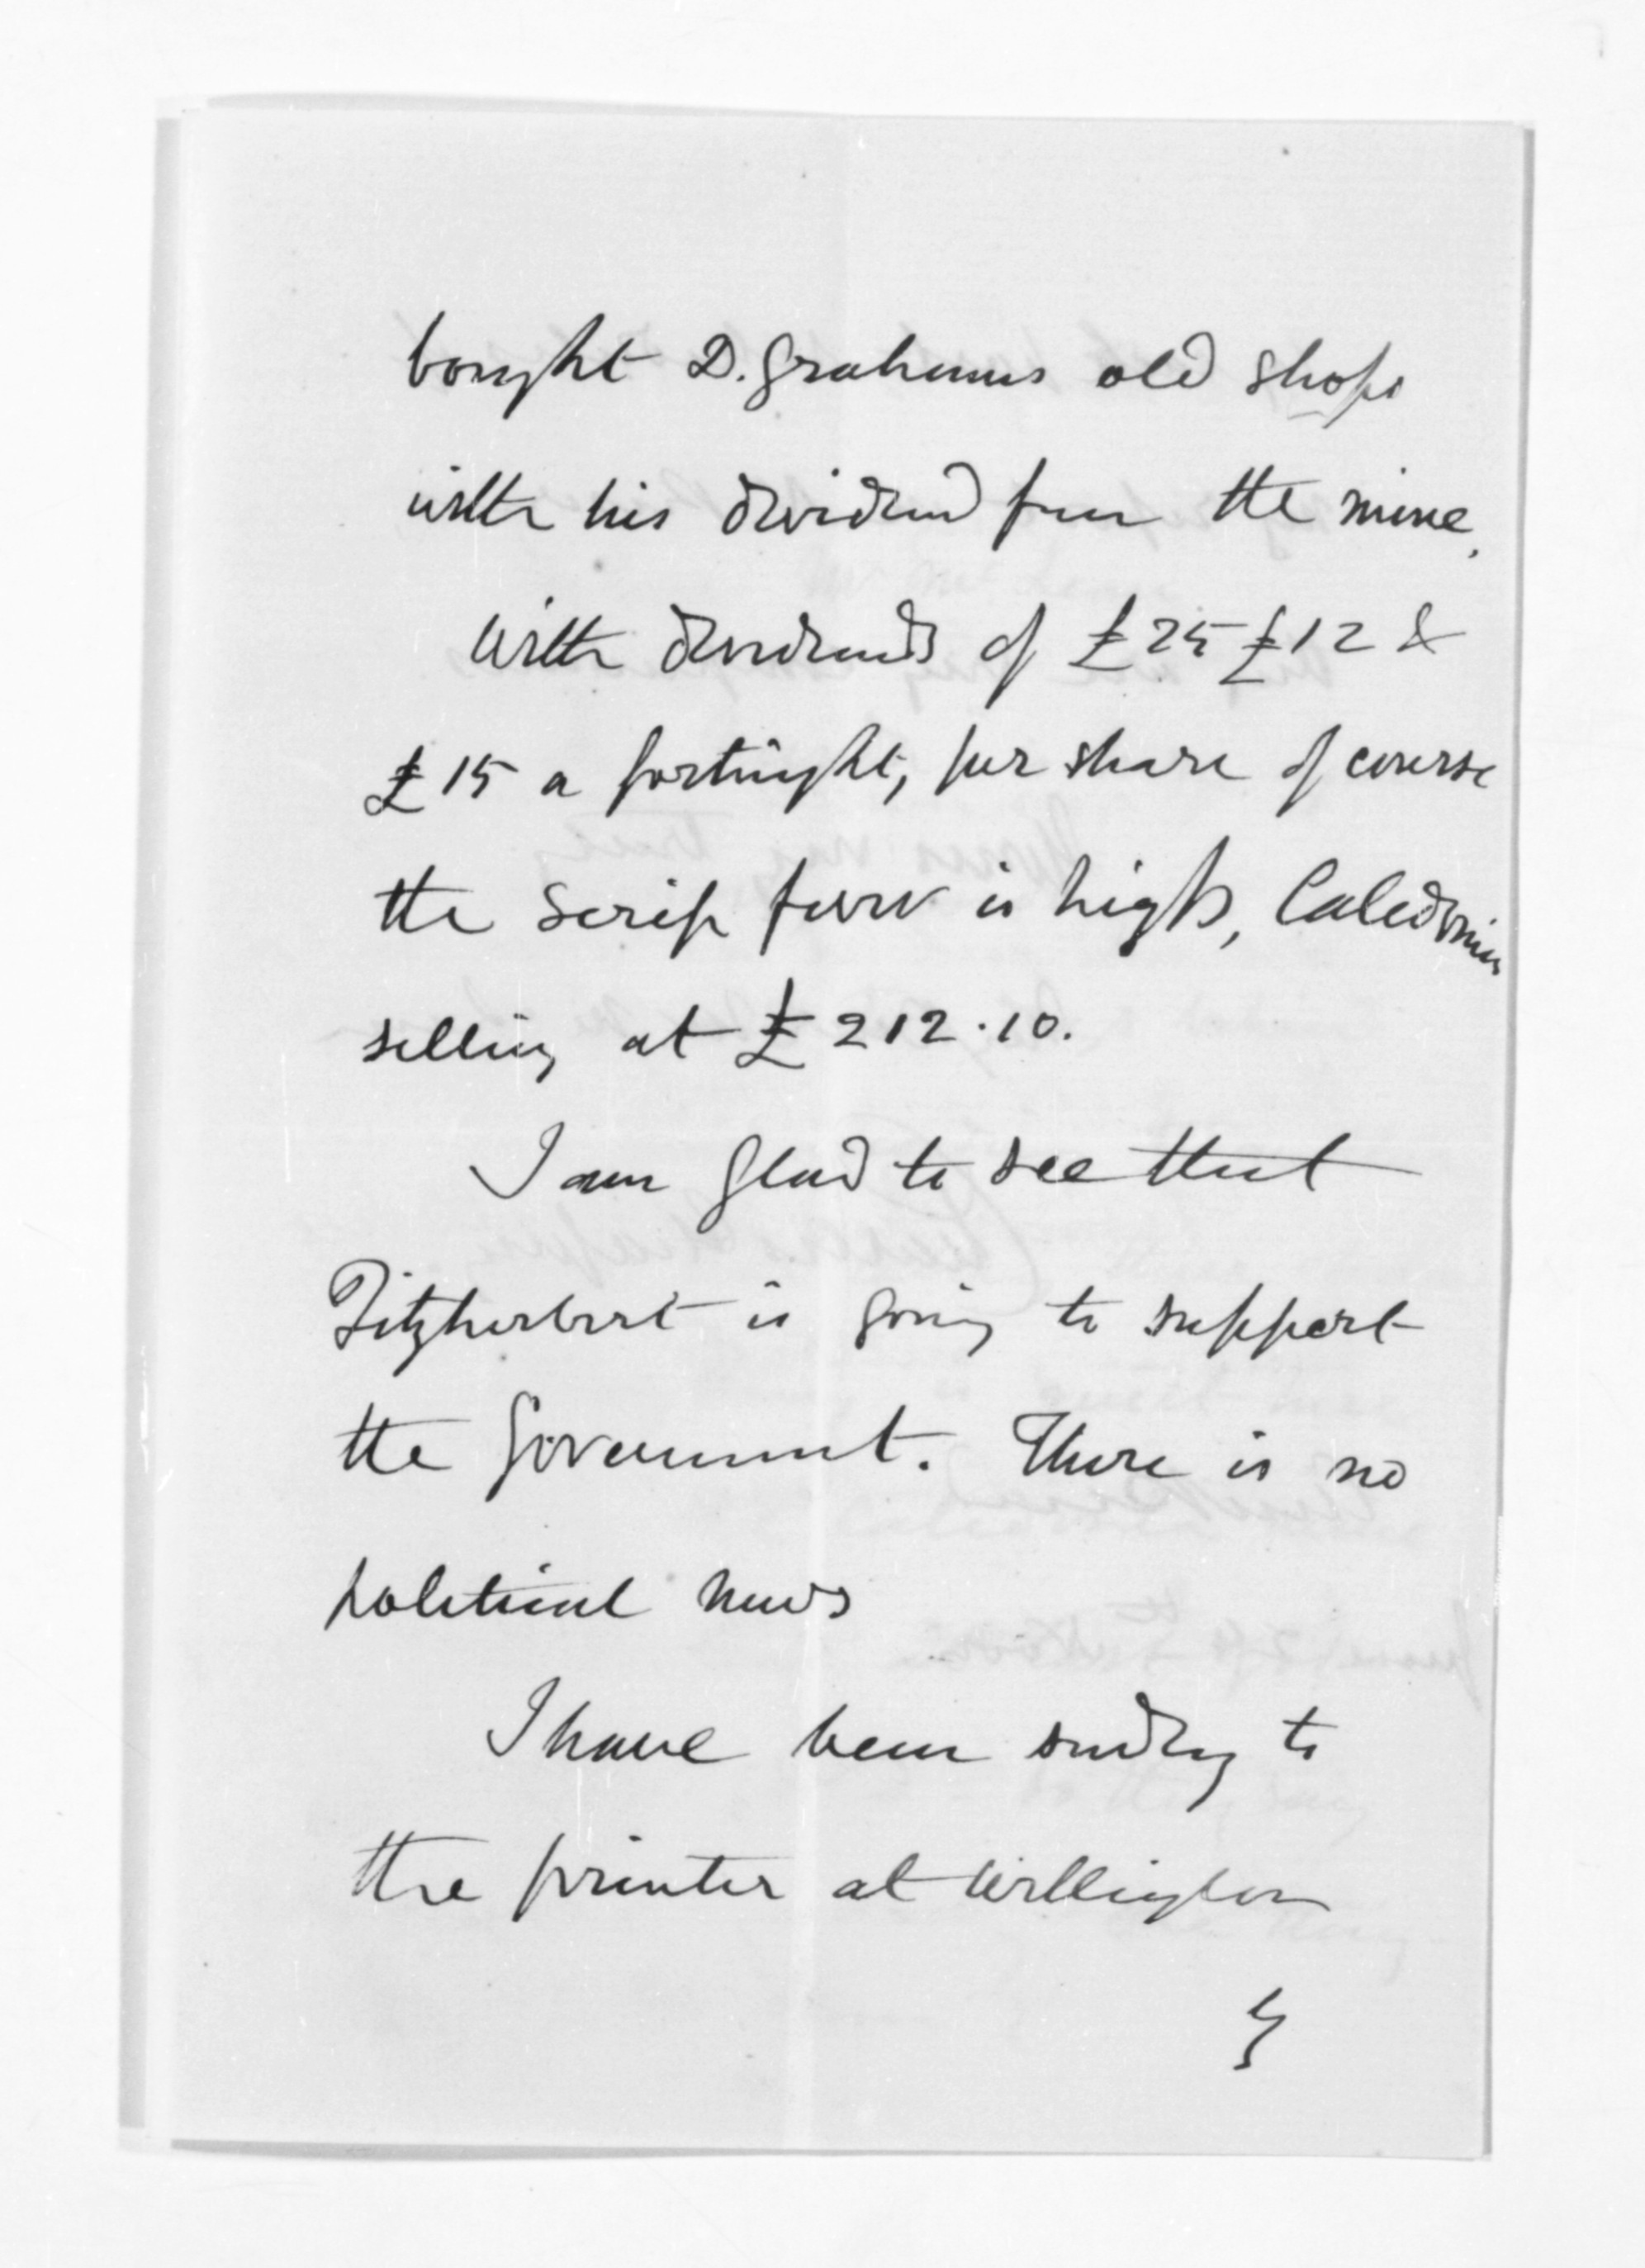 bought D. Grahams old shops
with his dividend from the mine.
With dividends of £25 £12 &
£15 a fortnight, per share of course
the scrip fever is high, Caledonian
selling at £212.10.
I am glad to see that
Fitzherbert is going to support
the Government. There is no
political news
I have been sending to
the printer at Wellington